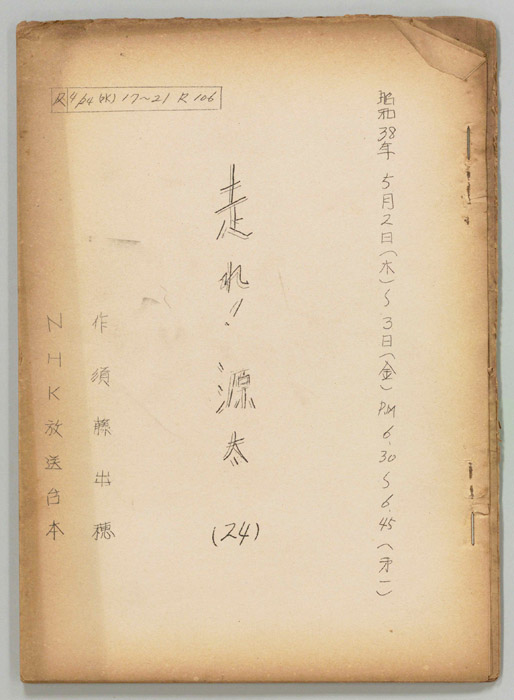 R 4/24(水) 17〜21 R 106
昭和38年 5月2日(木)〜3日(金) PM 6.30〜6.45 (第一)
走れ!源太 (24)
作 須藤出穂
NHK放送台本